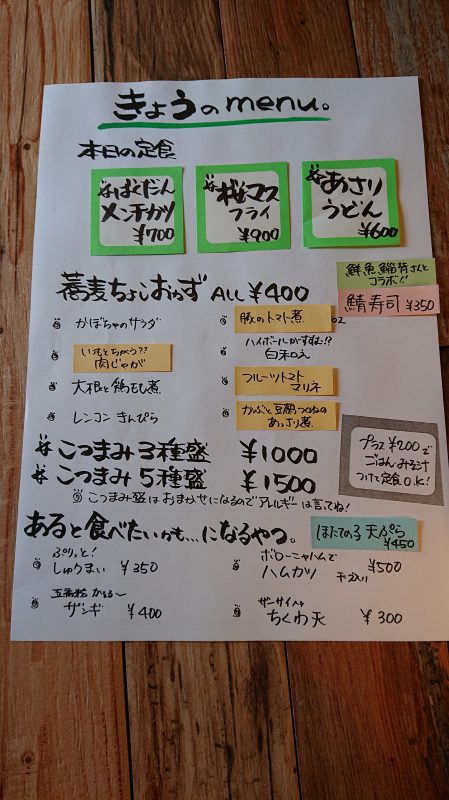 きょうのmenu。
本日の定食
ばくだん
メンチカツ
¥700
桜マス
フライ
¥900
あさり
うどん
¥600
鮮魚鯔背さんと
コラボ!!
鯖寿司 ¥350
蕎麦ちょいおかず ALL ¥400
かぼちゃのサラダ
豚のトマト煮
いもとちがう??
肉じゃが
ハイボールがすすむ!?
白和え
大根と鶏もも煮
フルーツトマト
マリネ
レンコンきんぴら
かぶと豆腐つくねの
あっさり煮
こつまみ3種盛 ¥1000
こつまみ5種盛 ¥1500
こつまみ盛はおまかせになるのでアレルギーは言ってね!
プラス¥200で
ごはん・みそ汁
つけて定食O.K!
あると食べたいかも…になるやつ。
ほたての子 天ぷら
¥450
ぷりっと!
しゅうまい ¥350
ボローニャハムで
ハムカツ ¥500
かるる〜
ザンギ ¥400
ザーサイ入り
ちくわ天 ¥300